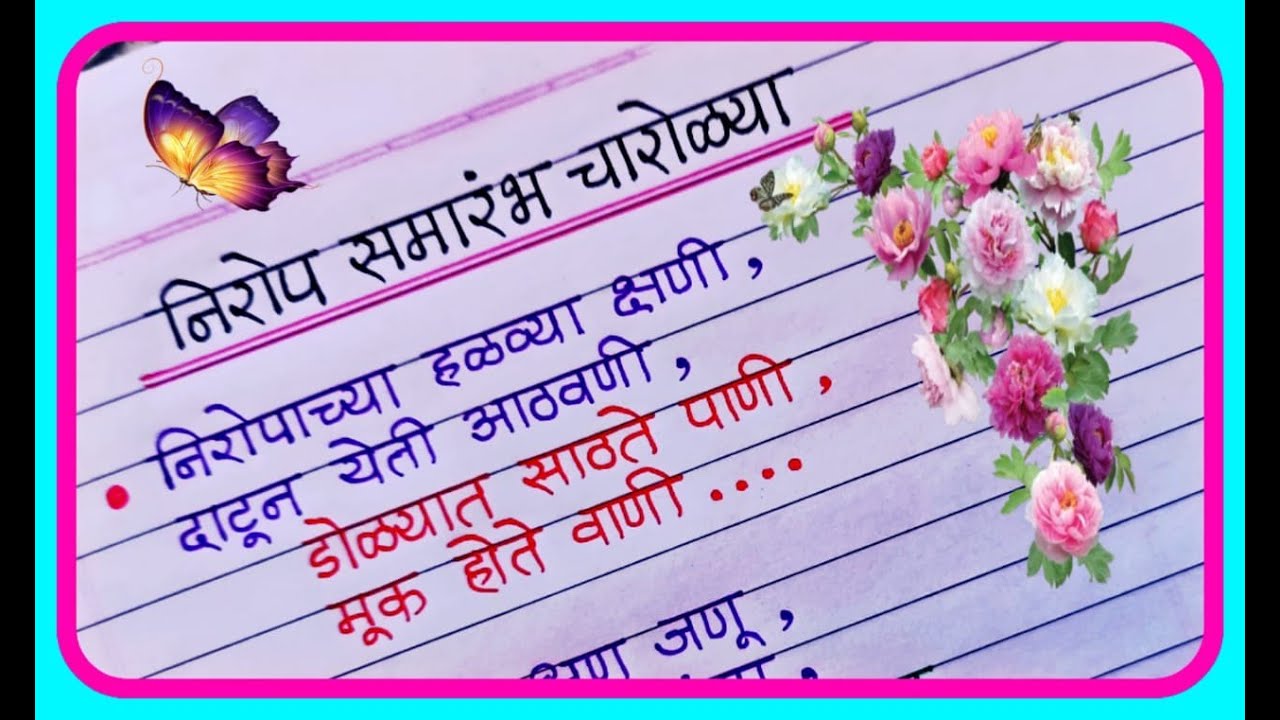 निरोप समारंभ चारोळ्या
निरोपाच्या हळव्या क्षणी ,
दाटून येती आठवणी ,
डोळ्यात साठते पाणी ,
मूक होते वाणी ....
जणू ,